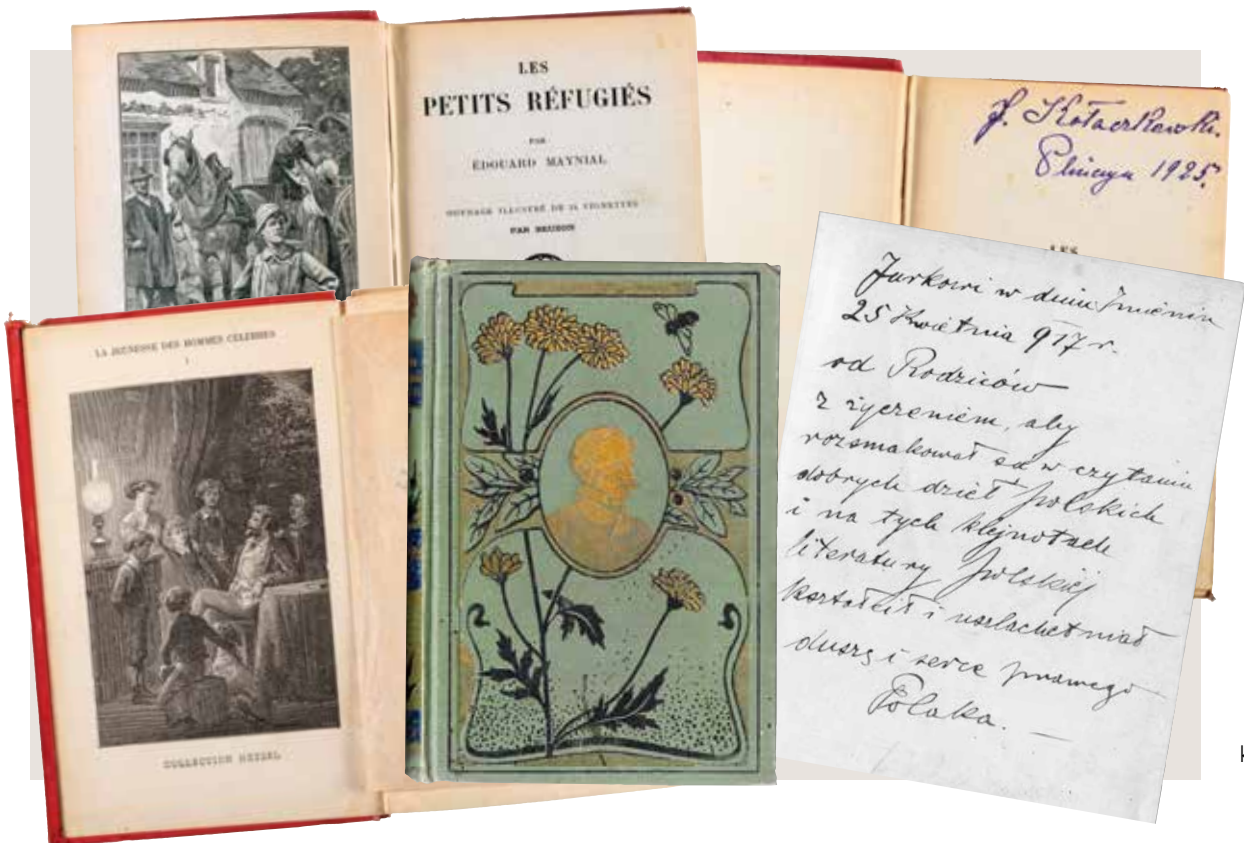 LES
PETITS RÉFUGIÉS
PAR
ÉDOUARD MAYNIAL
OUVRAGE ILLUSTRÉ DE VIGNETTES
PAR
J. Kołaczkowski.
1925.
LES
LA JEUNESSE DES HOMMES CÉLÈBRES
I
COLLECTION HETZEL
Jurkowi w dniu Imienin
25 Kwietnia 917 r.
od Rodziców
z życzeniem, aby
rozsmakował się w czytaniu
dobrych dzieł polskich
i na tych klejnotach
literatury polskiej
kształcił i uszlachetniał
duszę i serce prawego
Polaka. —
k